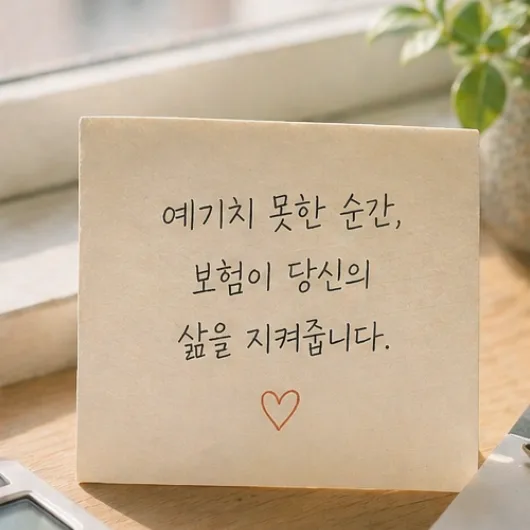 예기치 못한 순간,
보험이 당신의
삶을 지켜줍니다.